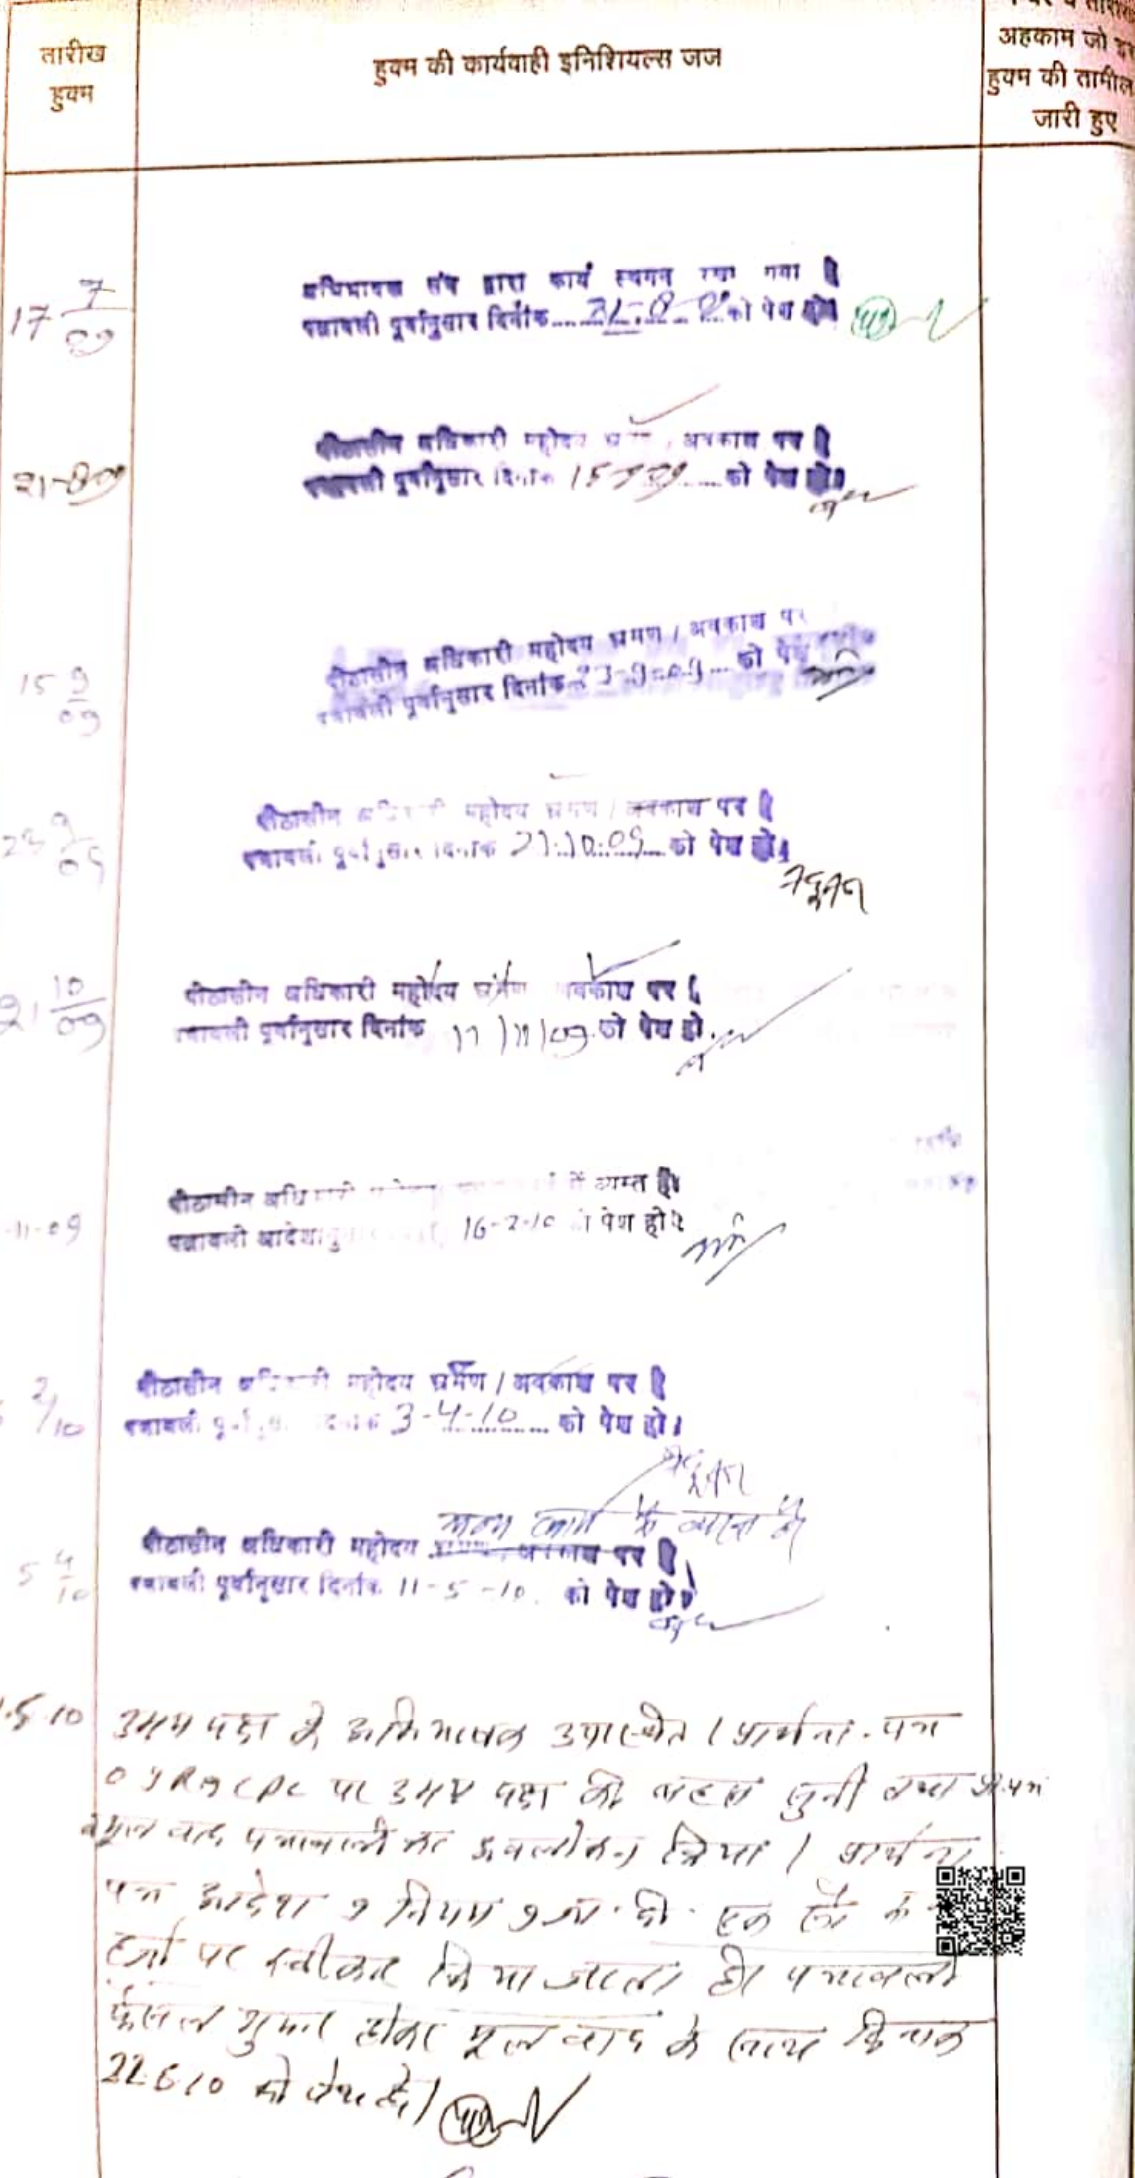 तारीख
हुक्म
हुक्म की कार्यवाही इनिशियल्स जज
अहकाम जो
हुक्म की तामील
जारी हुए
17 7/09
अभिभावक संघ द्वारा कार्य स्थगन रखा गया है
पत्रावली पूर्वानुसार दिनांक 21-8- को पेश हो
21-8-09
पीठासीन अधिकारी महोदय अवकाश पर है
पत्रावली पूर्वानुसार दिनांक 15-9-09 को पेश हो।
15 9/09
पीठासीन अधिकारी महोदय भ्रमण / अवकाश पर
पत्रावली पूर्वानुसार दिनांक 23-9-09 को पेश
23 9/09
पीठासीन अधिकारी महोदय भ्रमण / अवकाश पर है
पत्रावली पूर्वानुसार दिनांक 21.10.09 को पेश हो।
21 10/09
पीठासीन अधिकारी महोदय भ्रमण अवकाश पर है
पत्रावली पूर्वानुसार दिनांक 11/11/09 को पेश हो.
-11-09
पीठासीन अधिकारी में व्यस्त है।
पत्रावली 16-2-10 पेश हो।
2/10
पीठासीन अधिकारी महोदय भ्रमण / अवकाश पर है
पत्रावली 3-4-10 को पेश हो।
अन्य कार्य में व्यस्त है
5 4/10
पीठासीन अधिकारी महोदय भ्रमण अवकाश पर है
पत्रावली पूर्वानुसार दिनांक 11-5-10 को पेश हो।
.5.10 उभय पक्ष के अभिभाषक उपस्थित। प्रार्थना-पत्र
O 9 R 9 CPC पर उभय पक्ष की बहस सुनी तथा
व मूल वाद पत्रावली का अवलोकन किया। प्रार्थना
पत्र आदेश 9 नियम 9 जा.दी. एक सौ रु
हर्जा पर स्वीकार किया जाता है। पत्रावली
फैसल शुमार होकर मूल वाद के साथ दिनांक
22.6.10 को पेश हो।